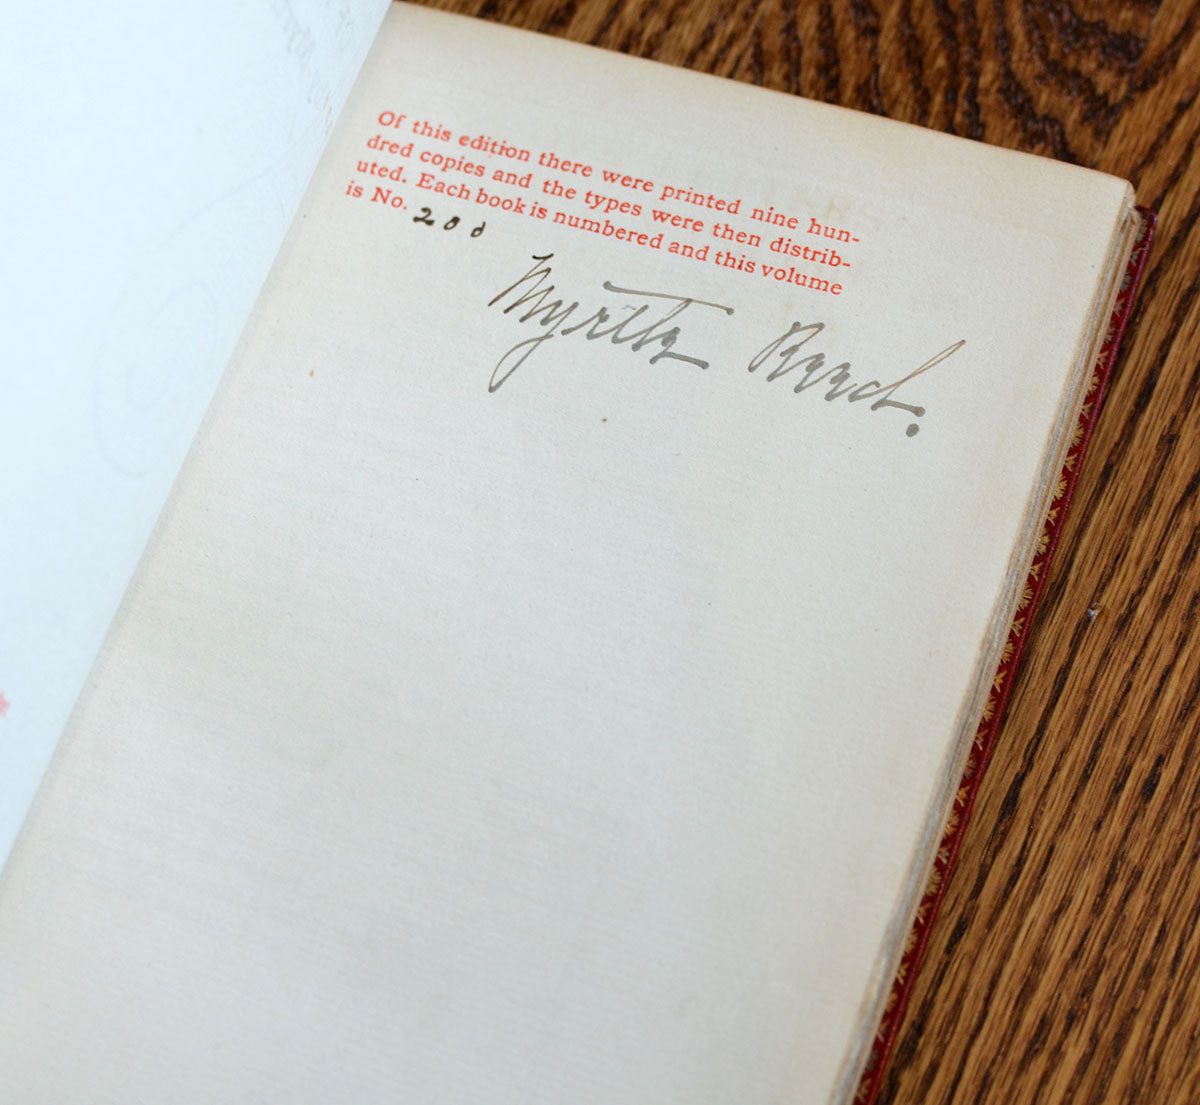 Of this edition there were printed nine hun-
dred copies and the types were then distrib-
uted. Each book is numbered and this volume
is No. 200
Myrtle Reed.